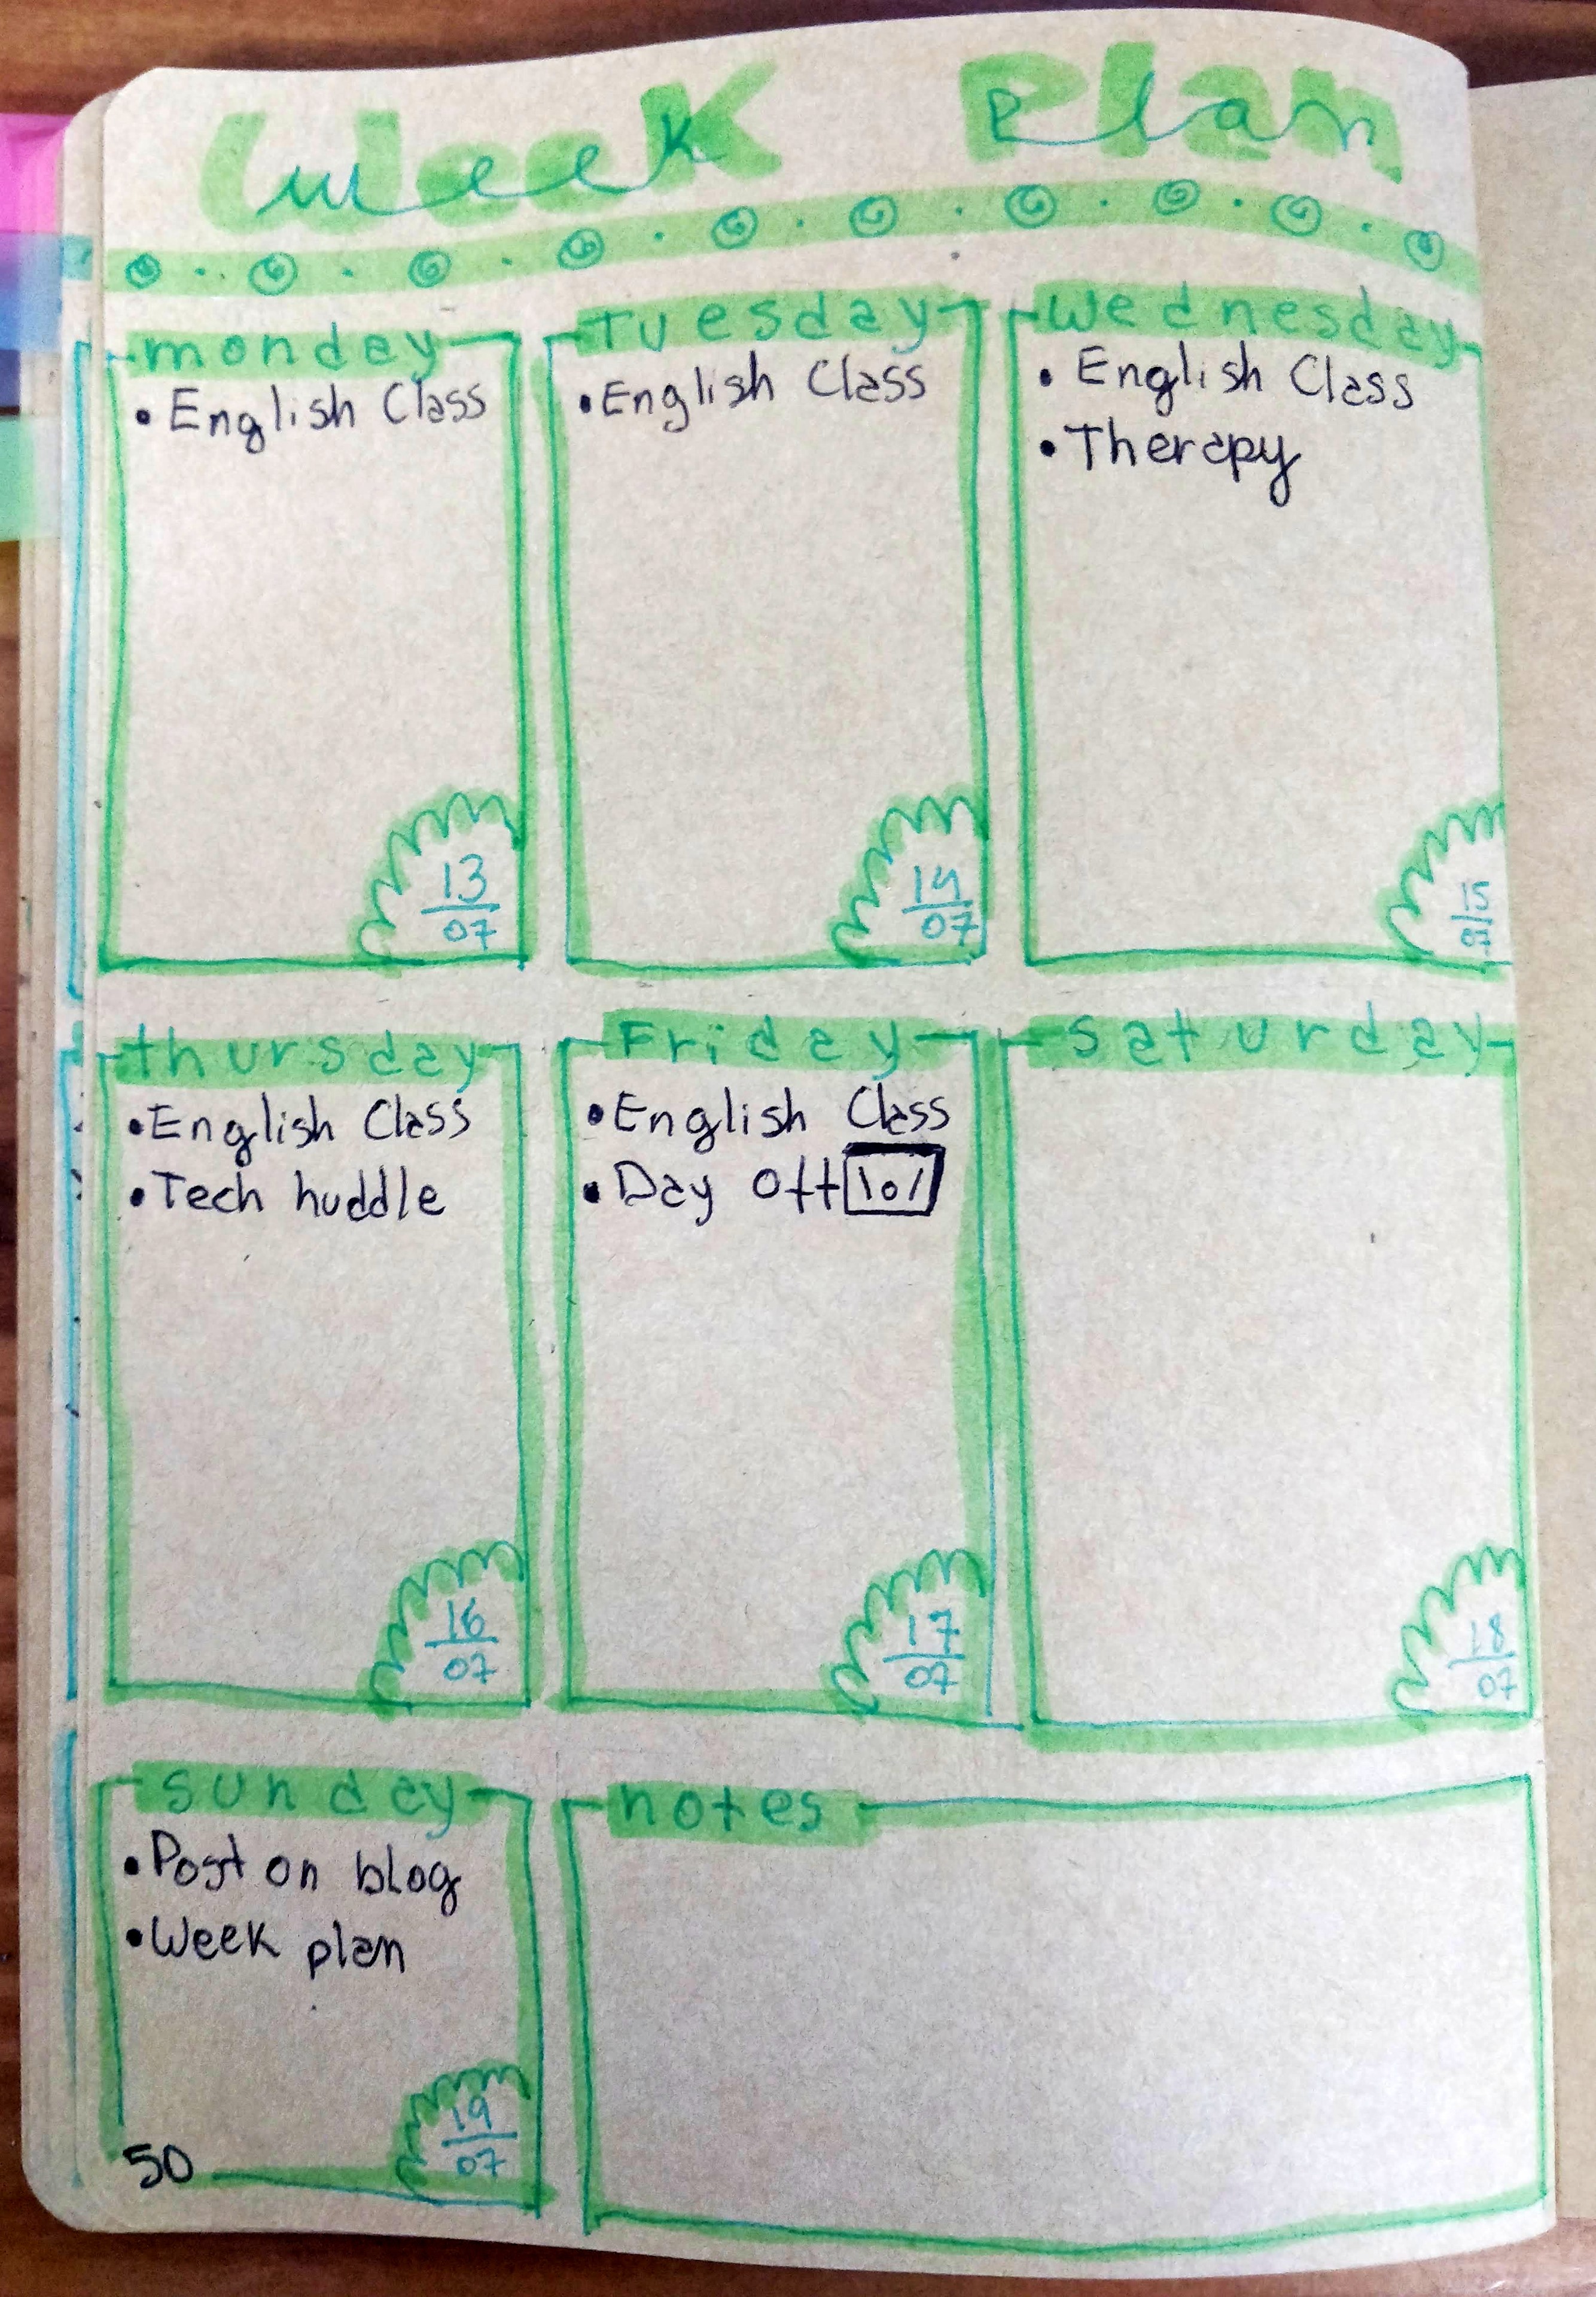 Week Plan
monday
• English Class
13
07
Tuesday
• English Class
14
07
Wednesday
• English Class
• Therapy
15
07
thursday
• English Class
• Tech huddle
16
07
Friday
• English Class
• Day Off \o/
17
07
saturday
18
07
sunday
• Post on blog
• Week plan
19
07
50
notes